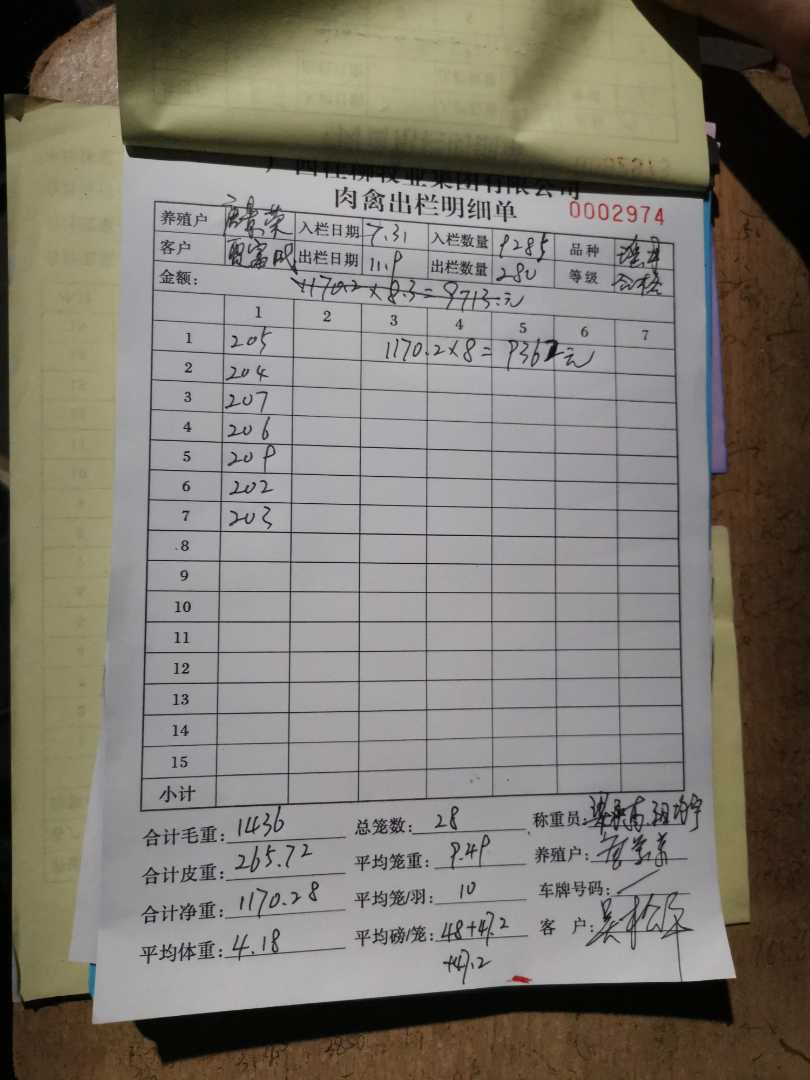 广西桂柳牧业集团有限公司
肉禽出栏明细单 0002974
养殖户 入栏日期 7.31 入栏数量 9285 品种
客户 出栏日期 11.9 出栏数量 280 等级 合格
金额: 1170.2×8.3=9713.元
1 2 3 4 5 6 7
1 205 1170.2×8=9362元
2 204
3 207
4 206
5 209
6 202
7 203
8
9
10
11
12
13
14
15
小计
合计毛重: 1436 总笼数: 28 称重员:
合计皮重: 265.72 平均笼重: 9.49 养殖户:
合计净重: 1170.28 平均笼/羽: 10 车牌号码:
平均体重: 4.18 平均磅/笼: 48+47.2 客 户:
+47.2